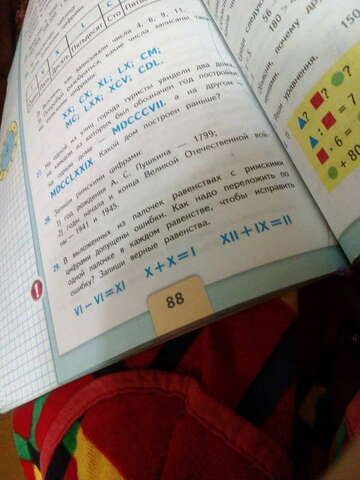 I X L C
Десять Пятьдесят Сто
числа 4, 6, 9, 11,
какие числа записаны
XX; CX; XL; LX; CM;
MC; LXX; XCV; CDL.
На одной из улиц города туристы увидели два дома,
на каждом из которых был обозначен год постройки:
на одном доме — MDCCCVII, а на другом —
MDCCLXXIX. Какой дом построен раньше?
римскими цифрами:
1) год рождения А. С. Пушкина — 1799;
2) годы начала и конца Великой Отечественной вой-
ны — 1941 и 1945.
29. В выложенных из палочек равенствах с римскими
цифрами допущены ошибки. Как надо переложить по
одной палочке в каждом равенстве, чтобы исправить
ошибку? Запиши верные равенства.
VI – VI = XI X + X = I XII + IX = II
88
1
56
180 >
150
почему
уравнения.
? ?
: = 7
· 6 =
+ 80